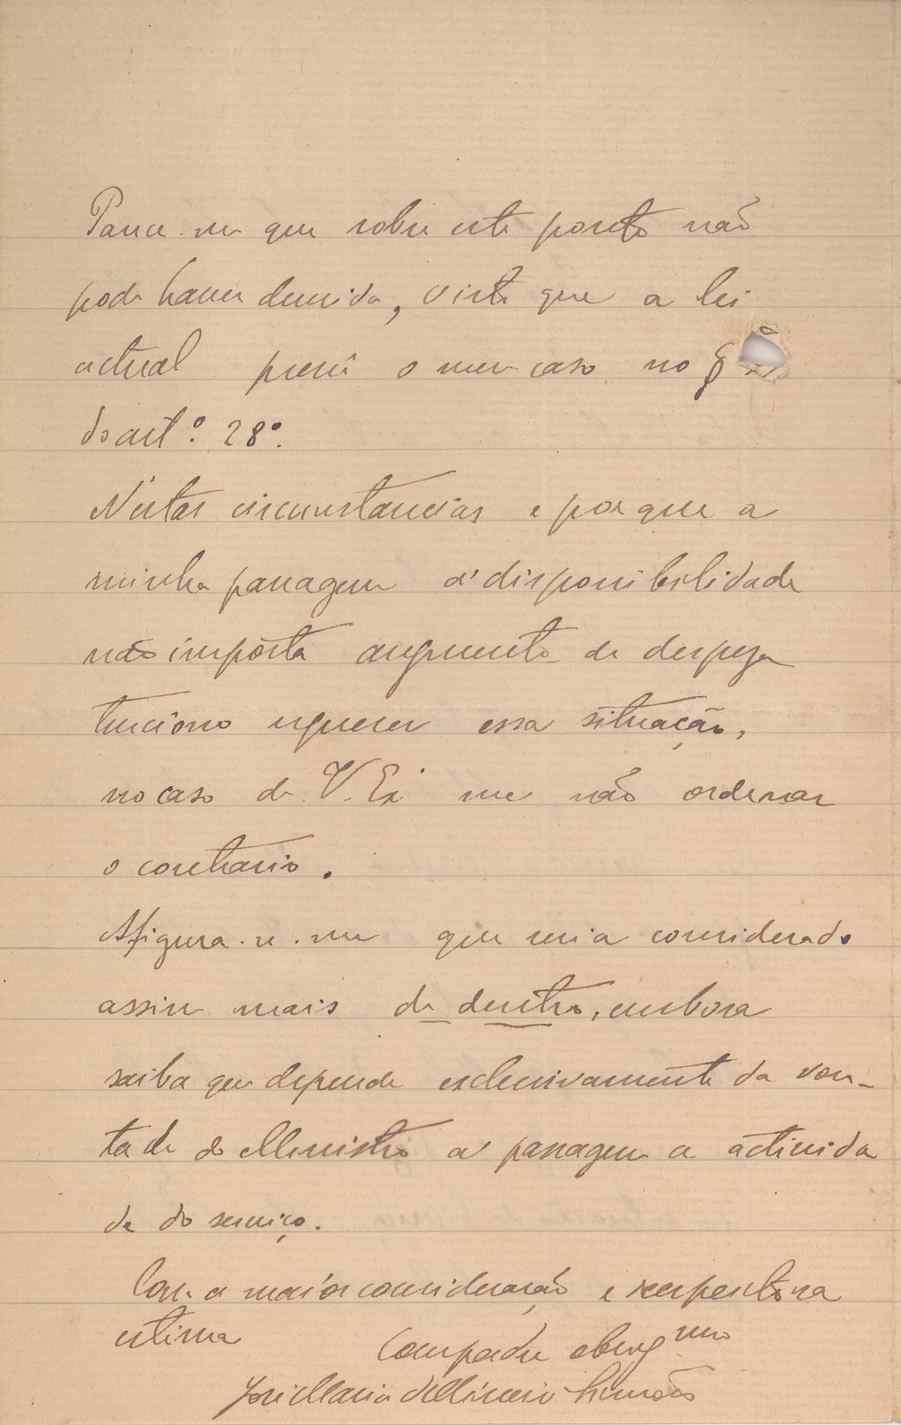 Parece-me que sobre este ponto não
pode haver duvida, visto que a lei
actual prevê o meu caso no §
do art.º 28º.
N'estas circunstancias e porque a
minha passagem á disponibilidade
não importa augmento de despeza
tenciono requerer essa situação,
no caso de V. Ex.ª me não ordenar
o contrario.
Afigura-se-me que seria considerado
assim mais de dentro, embora
saiba que depende exclusivamente da von-
tade do Ministro a passagem a activida
de do serviço.
Com a maior consideração e respeitosa
estima
Compadre obrig.mo
José Maria d'Almeida Simões